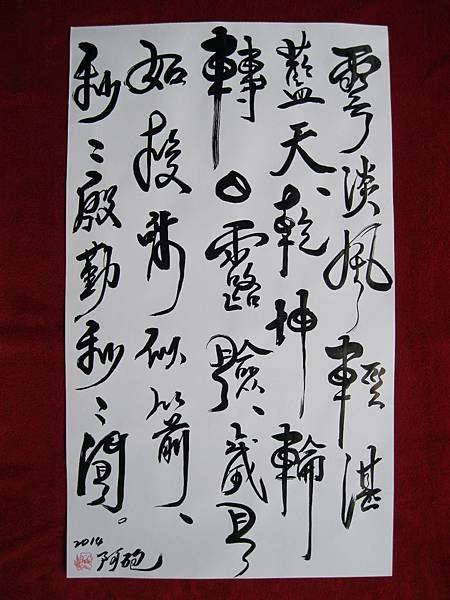 雲淡風輕湛
藍天乾坤輪
轉日露臉、歲月
如梭似箭、
秒〻殷勤秒〻。
2014
阿